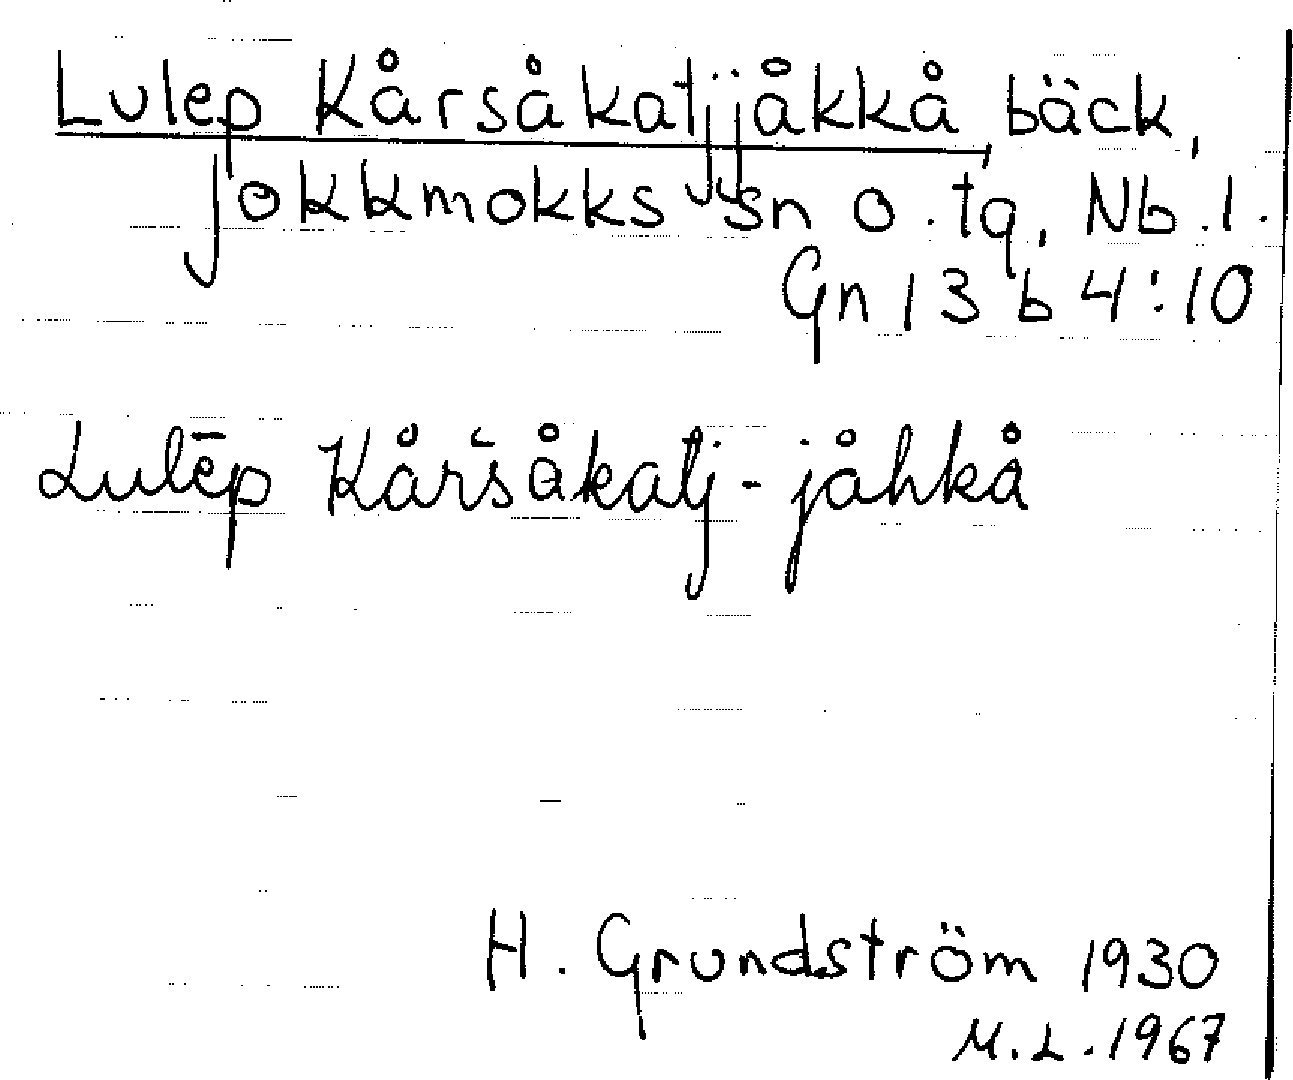 Lulep Kårsåkatjjåkkå, bäck,
Jokkmokks sn o. tg, Nb. l.
Gn 13 b 4:10
Lulēp Kåršåkatj-jåhkå
H. Grundström 1930
M.L. 1967